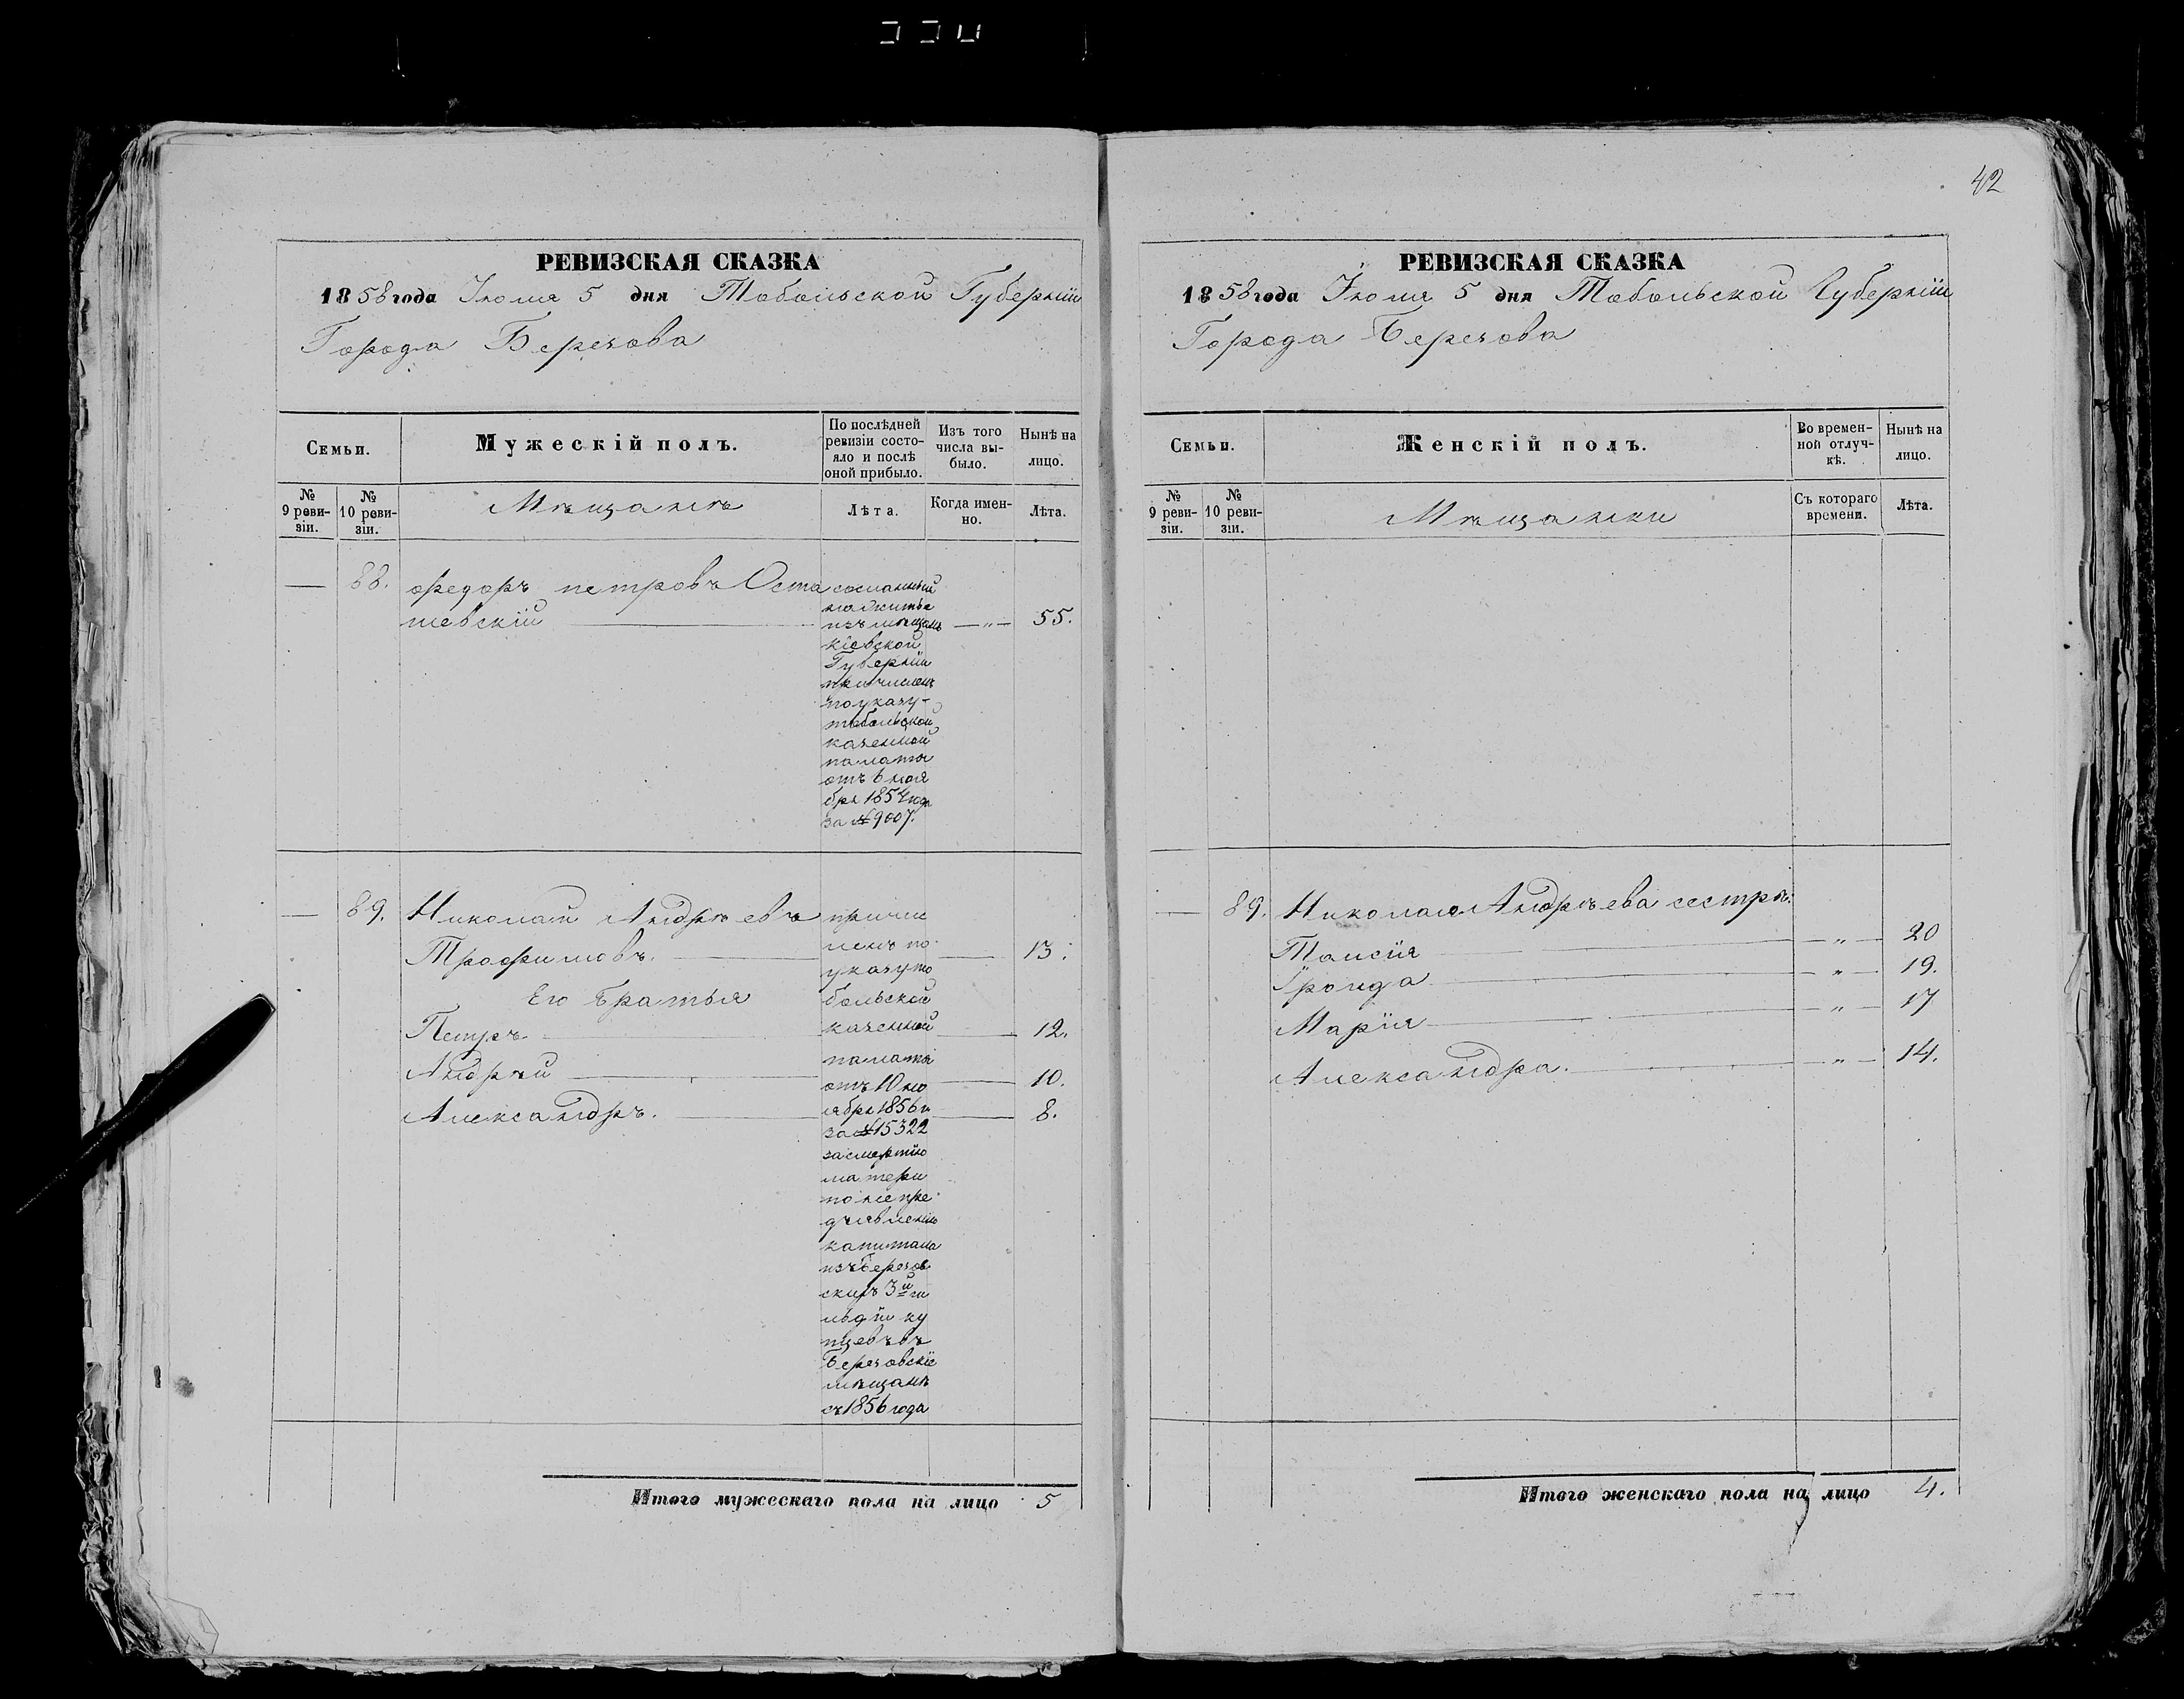 42
РЕВИЗСКАЯ СКАЗКА
1858 года Іюля 5 дня Тобольской Губерніи
Города Березова
Семьи.
Мужескій полъ.
По послѣдней ревизіи состо-
яло и послѣ
оной прибыло.
Изъ того
числа вы-
было.
Нынѣ на
лицо.
№
9 реви-
зіи.
№
10 реви-
зіи.
Мѣщанъ
Лѣта.
Когда имен-
но.
Лѣта.
— 88. Федоръ петровъ Оста
шевскій — " — 55.
сосланный
на житье
изъ мѣщанъ
кіевской
Губерніи
причисленъ
по указу
тобольской
казенной
палаты
отъ 6 ноя
бря 1854 года
за № 9007.
— 89. Николай Андрѣевъ
Трофимовъ. 13.
Его братья
Петръ. 12.
Андрѣй 10.
Александръ. 8.
причис
ленъ по
указу то
больской
казенной
палаты
отъ 10 но
ября 1856 г.
за № 15322
за смертію
матери
по не пре
дъявленію
капитала
изъ Березов
скихъ 3й ги
льдіи ку
пцевъ въ
Березовскіе
мѣщане
съ 1856 года
Итого мужескаго пола на лицо 5
РЕВИЗСКАЯ СКАЗКА
1858 года Іюля 5 дня Тобольской Губерніи
Города Березова
Семьи.
Женскій полъ.
Во времен-
ной отлуч-
кѣ.
Нынѣ на
лицо.
№
9 реви-
зіи.
№
10 реви-
зіи.
Мѣщанки
Съ котораго
времени.
Лѣта.
— 89. Николая Андрѣева сестры:
Таисія — " — 20
— " — 19.
Марія — " — 17
Александра. — " — 14.
Итого женскаго пола на лицо 4.